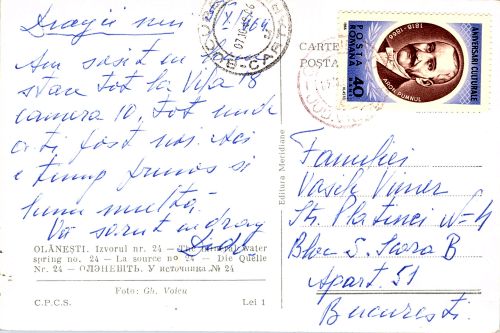 Dragii mei
Am sosit în
stau tot la Vila 18
camera 10, tot unde
ați fost voi. Aici
e timp frumos și
lume multă.
Vă sărut cu drag
OLĂNEȘTI. Izvorul nr. 24 — The mineral water
spring no. 24 — La source nº 24 — Die Quelle
Nr. 24 — ОЛЭНЕШТЬ. У источника № 24
Foto: Gh. Voicu
C.P.C.S. Lei 1
Editura Meridiane
CARTE
POȘTA
ANIVERSĂRI CULTURALE
1818-1866
POSTA ROMANA
40
BANI
ARON PUMNUL
Familiei
Vasile Vimer
Str. Platinei Nº 4
Bloc 5. Scara B
Apart. 51
București.